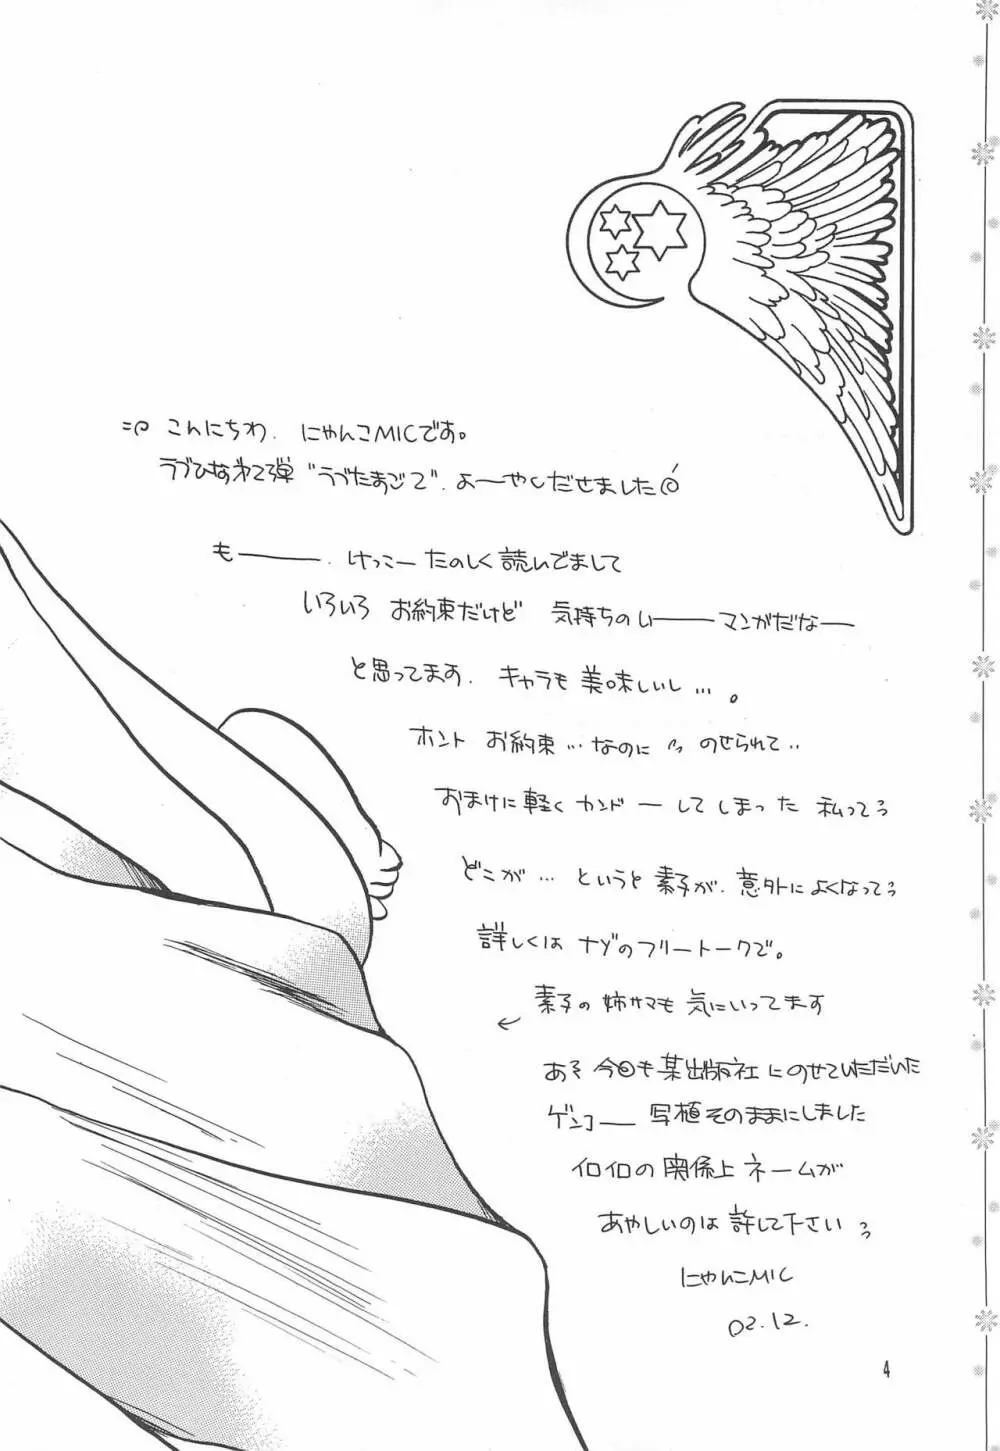 こんにちわ、にゃんこMICです。
ラブひな第2弾“ラブたまごて”、よーやくだせました
もー―――、けっこーたのしく読んでまして
いろいろ お約束だけど 気持ちのいー――マンガだなー
と思ってます、キャラも美味しいし…。
ホント お約束…なのに のせられて‥
おまけに軽くカンドーしてしまった 私って
どこが…というと素子が、意外によくなって
詳しくは ナゾのフリートークで。
素子の姉サマも 気にいってます
あそ 今回も某出版社にのせていただいた
ゲンコー 写植そのままにしました
イロイロの関係上 ネームが
あやしいのは 許して下さい
にゃんこMIC
02.12.
4